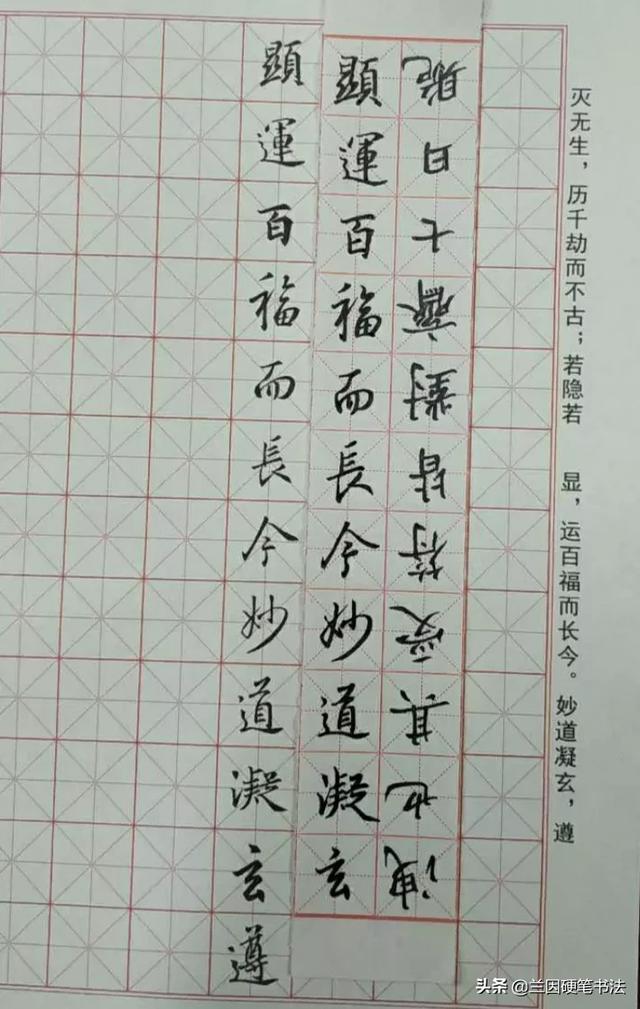 灭无生，历千劫而不古；若隐若 显，运百福而长今。妙道凝玄，遵
洩也其受符皆對齋七日
顯運百福而長今妙道凝玄
顯運百福而長今妙道凝玄遵
头条 @兰因硬笔书法